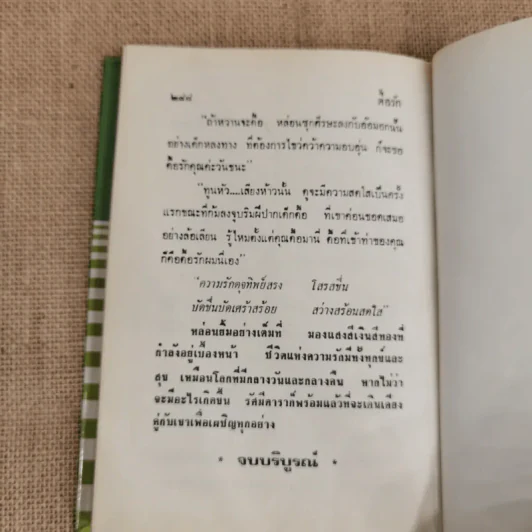 ๒๔๘ ดื้อรัก
"ถ้าหวานจะดื้อ หล่อนซุกศีรษะลงกับอ้อมอกนั้น
อย่างเด็กหลงทาง ที่ต้องการไขว่คว้าความอบอุ่น ก็จะขอ
ดื้อรักคุณค่ะวันชนะ"
"ทูนหัว....เสียงห้าวนั้น ดูจะมีความสดใสเป็นครั้ง
แรกขณะที่ก้มลงจูบริมฝีปากเด็กดื้อ ที่เขาค่อนขอดเสมอ
อย่างล้อเลียน รู้ไหมตั้งแต่คุณดื้อมานี่ ดื้อที่เข้าท่าของคุณ
ก็คือดื้อรักผมนี่เอง"
"ความรักดุจทิพย์สรง โสรสชื่น
บัดขื่นบัดเศร้าสร้อย สว่างสร้อนสดใส"
หล่อนยิ้มอย่างเต็มที่ มองแสงสีเงินสีทองที่
กำลังอยู่เบื้องหน้า ชีวิตแห่งความรักมีทั้งทุกข์และ
สุข เหมือนโลกที่มีกลางวันและกลางคืน หากไม่ว่า
จะมีอะไรเกิดขึ้น รัศมีดาราก็พร้อมแล้วที่จะเดินเคียง
คู่กับเขาเพื่อเผชิญทุกอย่าง
• จบบริบูรณ์ •